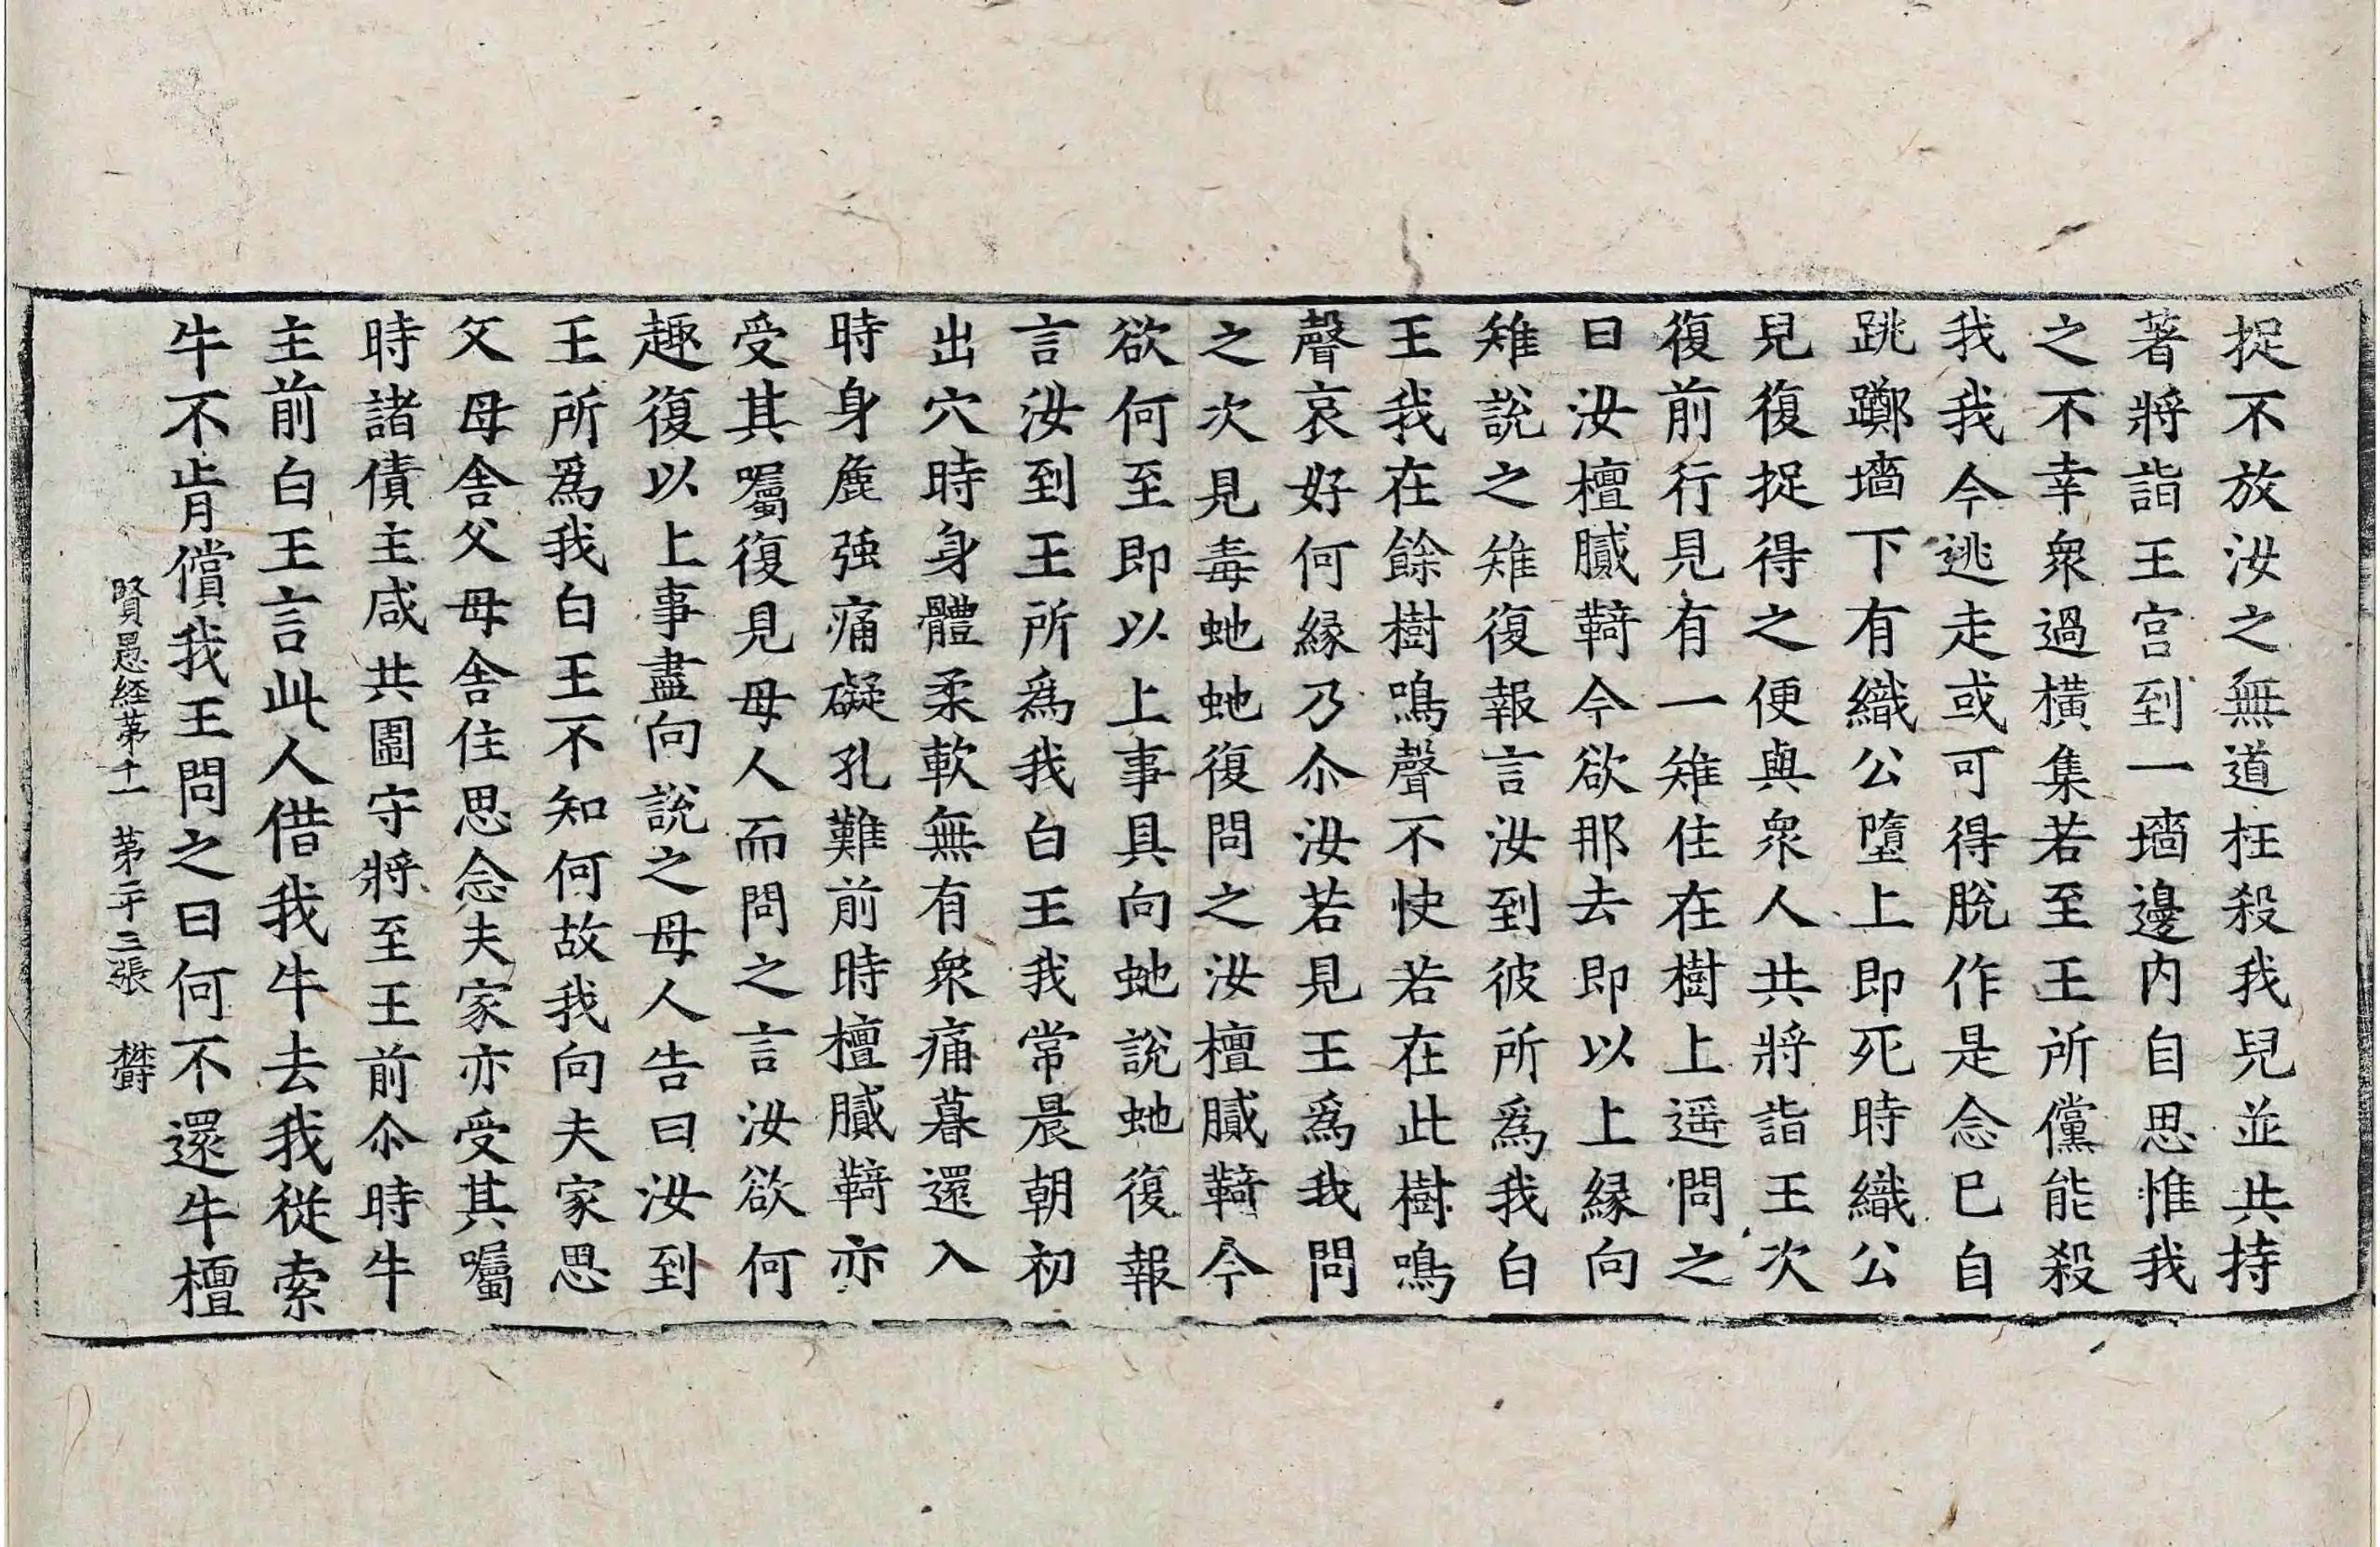 捉不放汝之無道枉殺我兒並共持
著將詣王宫到一墻邊内自思惟我
之不幸衆過橫集若至王所儻能殺
我我今逃走或可得脫作是念已自
跳躑墻下有織公墮上即死時織公
兒復捉得之便與衆人共將詣王次
復前行見有一雉住在樹上遥問之
曰汝檀膩䩭今欲那去即以上縁向
雉說之雉復報言汝到彼所爲我白
王我在餘樹鳴聲不快若在此樹鳴
聲哀好何縁乃尒汝若見王爲我問
之次見毒虵虵復問之汝檀膩䩭今
欲何至即以上事具向虵說虵復報
言汝到王所爲我白王我常晨朝初
出穴時身體柔軟無有衆痛暮還入
時身麁强痛礙孔難前時檀膩䩭亦
受其囑復見母人而問之言汝欲何
趣復以上事盡向說之母人告曰汝到
王所爲我白王不知何故我向夫家思
父母舍父母舍住思念夫家亦受其囑
時諸債主咸共圍守將至王前尒時牛
主前白王言此人借我牛去我從索
牛不肯償我王問之曰何不還牛檀
賢愚経苐十一 苐二十三張 欎